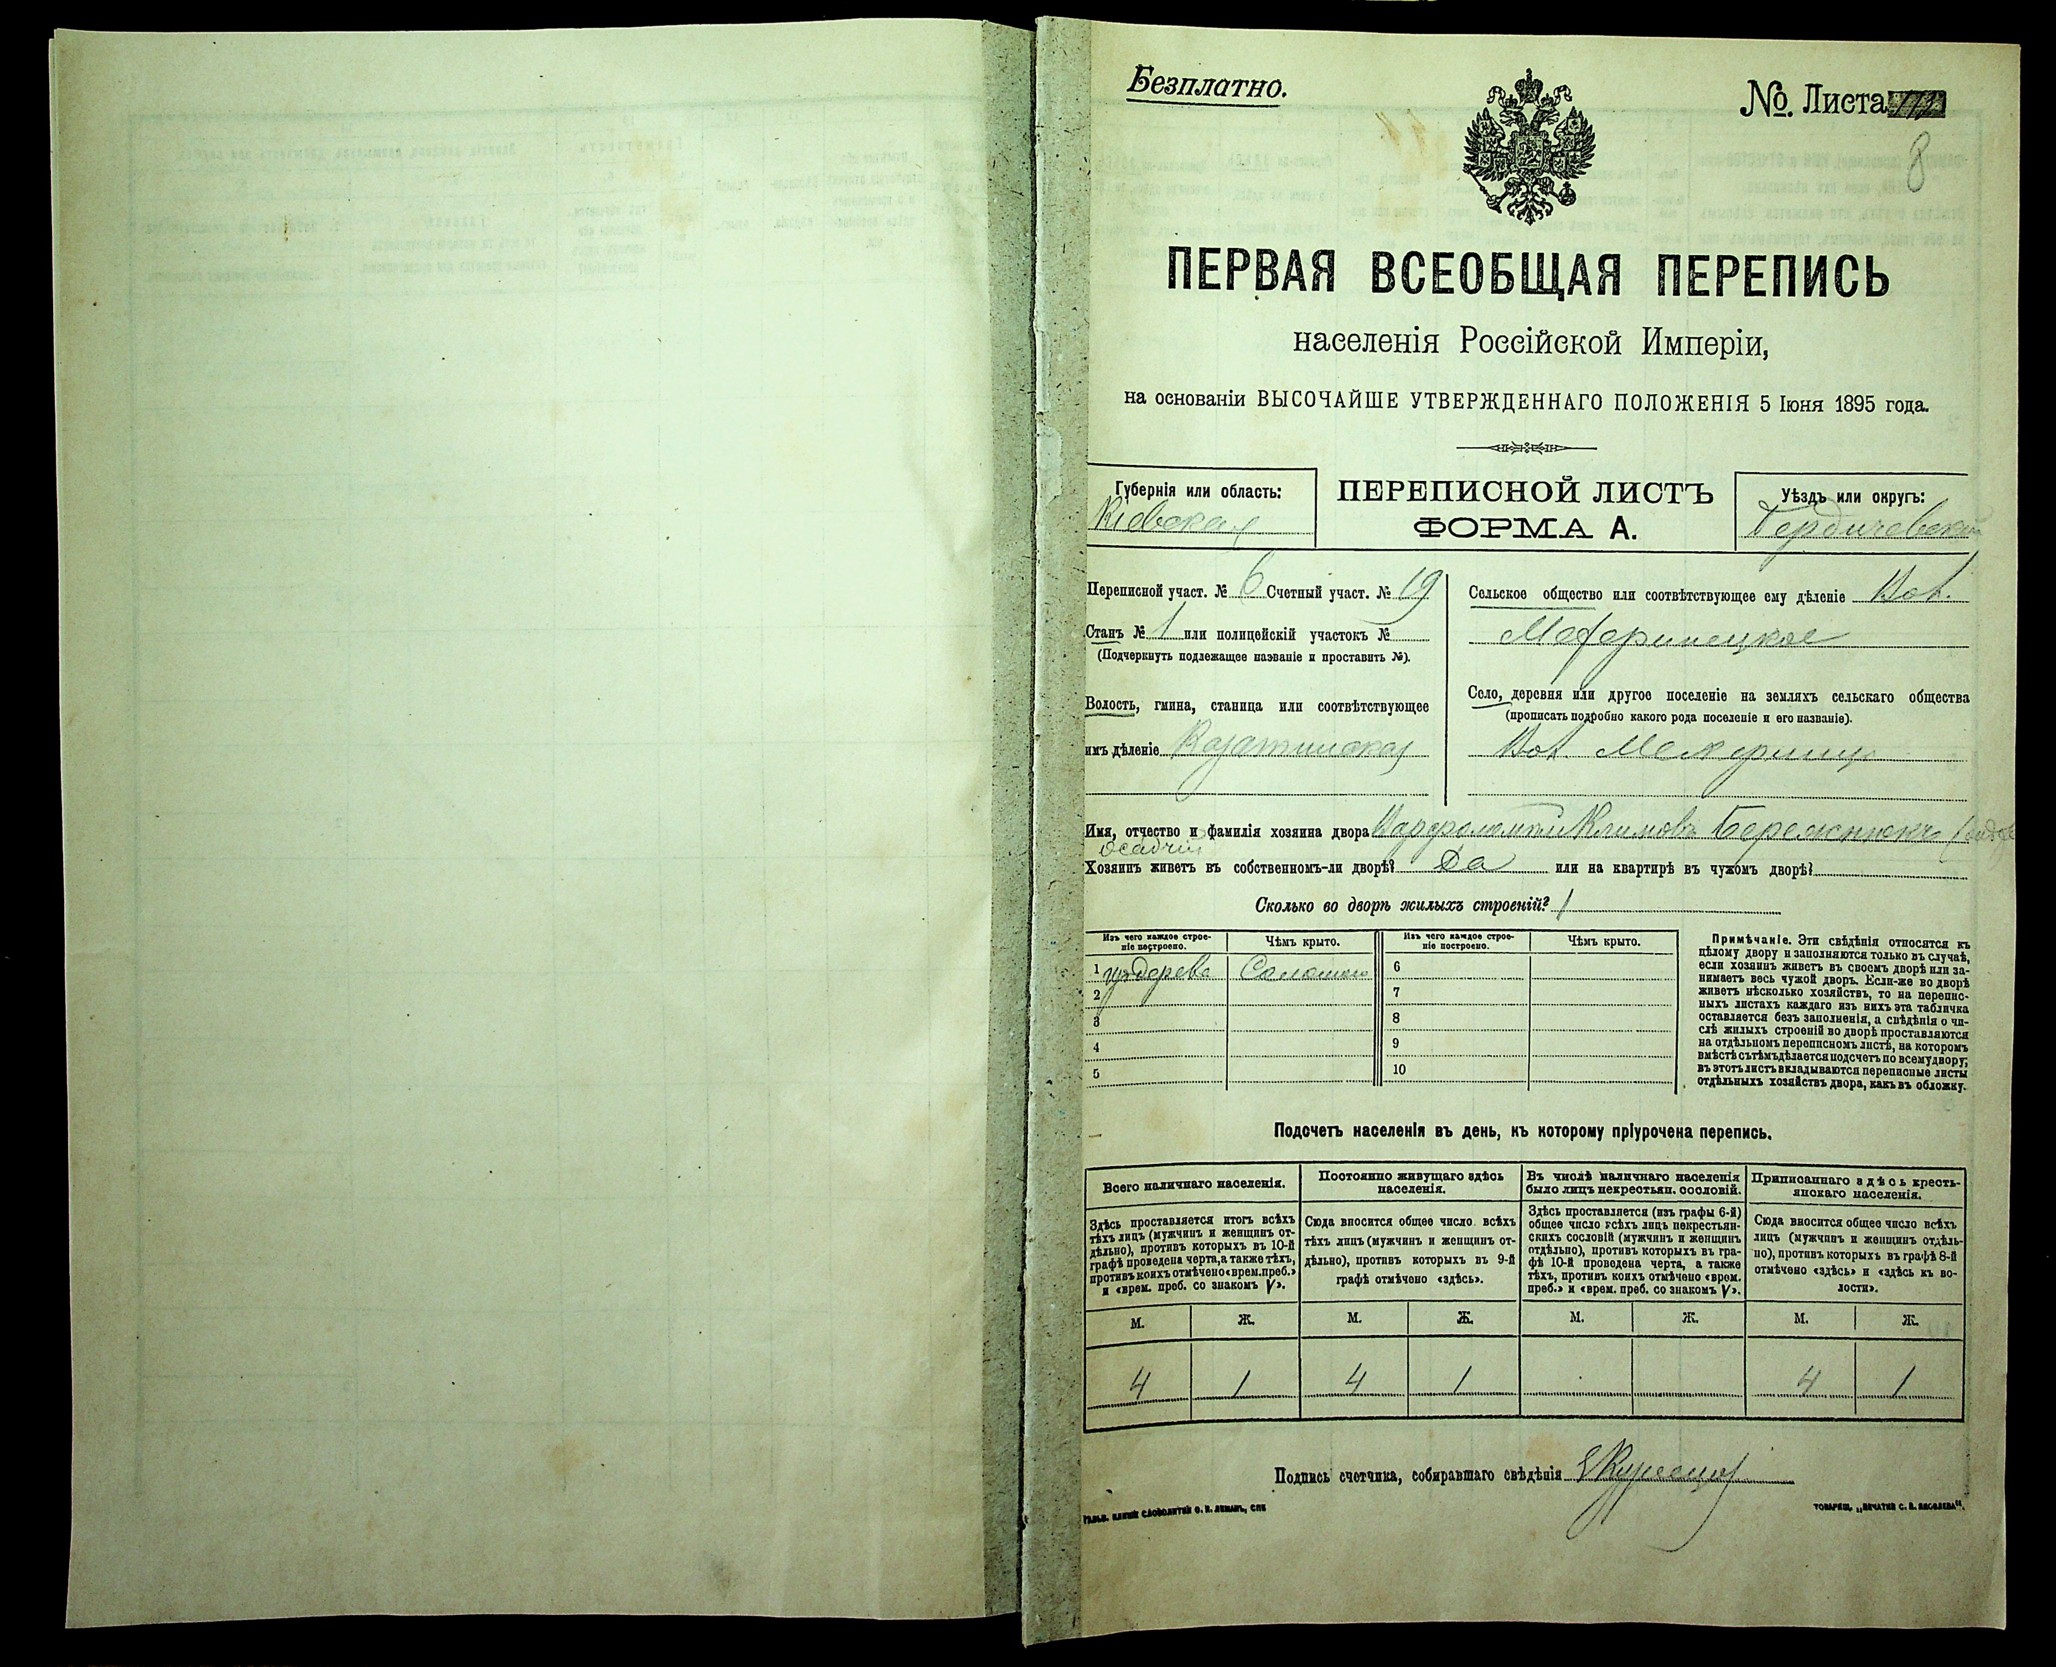 Безплатно.
№. Листа
8
ПЕРВАЯ ВСЕОБЩАЯ ПЕРЕПИСЬ
населенія Россійской Имперіи,
на основаніи ВЫСОЧАЙШЕ УТВЕРЖДЕННАГО ПОЛОЖЕНІЯ 5 Іюня 1895 года.
Губернія или область:
Кіевская
ПЕРЕПИСНОЙ ЛИСТЪ
ФОРМА А.
Уѣздъ или округъ:
Бердичевскій
Переписной участ. № 6 Счетный участ. № 19
Станъ № 1 или полицейскій участокъ №
(Подчеркнуть подлежащее названіе и проставить №).
Волость, гмина, станица или соотвѣтствующее
имъ дѣленіе Козятинская
Сельское общество или соотвѣтствующее ему дѣленіе
Село, деревня или другое поселеніе на земляхъ сельскаго общества
(прописать подробно какого рода поселеніе и его названіе).
Имя, отчество и фамилія хозяина двора Варфоломей Климовъ
Хозяинъ живетъ въ собственномъ-ли дворѣ? Да или на квартирѣ въ чужомъ дворѣ?
Сколько во дворѣ жилыхъ строеній? 1
Изъ чего каждое строе-
ніе построено.
Чѣмъ крыто.
Изъ чего каждое строе-
ніе построено.
Чѣмъ крыто.
1 изъ дерева Соломою 6
2 7
3 8
4 9
5 10
Примѣчаніе. Эти свѣдѣнія относятся къ
цѣлому двору и заполняются только въ случаѣ,
если хозяинъ живетъ въ своемъ дворѣ или за-
нимаетъ весь чужой дворъ. Если-же во дворѣ
живетъ нѣсколько хозяйствъ, то на перепис-
ныхъ листахъ каждаго изъ нихъ эта табличка
оставляется безъ заполненія, а свѣдѣнія о чи-
слѣ жилыхъ строеній во дворѣ проставляются
на отдѣльномъ переписномъ листѣ, на которомъ
вмѣстѣ съ тѣмъ дѣлается подсчетъ по всему двору;
въ этотъ листъ вкладываются переписные листы
отдѣльныхъ хозяйствъ двора, какъ въ обложку.
Подсчетъ населенія въ день, къ которому пріурочена перепись.
Всего наличнаго населенія.
Здѣсь проставляется итогъ всѣхъ
тѣхъ лицъ (мужчинъ и женщинъ от-
дѣльно), противъ которыхъ въ 10-й
графѣ проведена черта, а также тѣхъ,
противъ коихъ отмѣчено «врем. преб.»
и «врем. преб. со знакомъ V».
Постоянно живущаго здѣсь
населенія.
Сюда вносится общее число всѣхъ
тѣхъ лицъ (мужчинъ и женщинъ от-
дѣльно), противъ которыхъ въ 9-й
графѣ отмѣчено «здѣсь».
Въ числѣ наличнаго населенія
было лицъ некрестьян. сословій.
Здѣсь проставляется (изъ графы 6-й)
общее число всѣхъ лицъ некрестьян-
скихъ сословій (мужчинъ и женщинъ
отдѣльно), противъ которыхъ въ гра-
фѣ 10-й проведена черта, а также
тѣхъ, противъ коихъ отмѣчено «врем.
преб.» и «врем. преб. со знакомъ V».
Приписаннаго здѣсь кресть-
янскаго населенія.
Сюда вносится общее число всѣхъ
лицъ (мужчинъ и женщинъ отдѣль-
но), противъ которыхъ въ графѣ 8-й
отмѣчено «здѣсь» и «здѣсь къ во-
лости».
М. Ж. М. Ж. М. Ж. М. Ж.
4 1 4 1 4 1
Подпись счетчика, собиравшаго свѣдѣнія
ГАЛЬВ. КЛИШЕ СЛОВОЛИТНИ О. И. ЛЕМАНЪ, СПБ
ТОВАРИЩ. „ПЕЧАТНЯ С. П. ЯКОВЛЕВА".